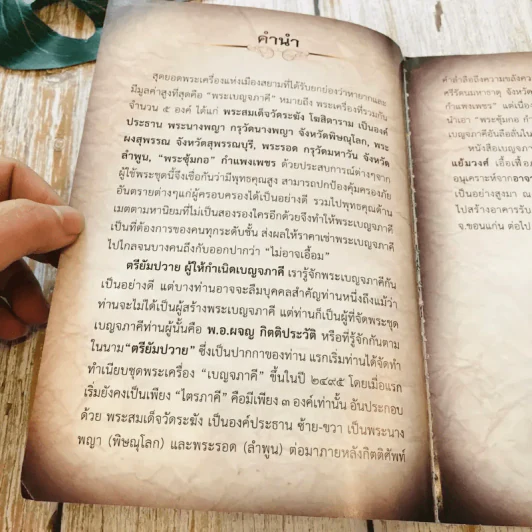 คำนำ
สุดยอดพระเครื่องแห่งเมืองสยามที่ได้รับยกย่องว่าหายากและ
มีมูลค่าสูงที่สุดคือ “พระเบญจภาคี” หมายถึง พระเครื่องที่รวมกัน
จำนวน ๕ องค์ ได้แก่ พระสมเด็จวัดระฆัง โฆสิตาราม เป็นองค์
ประธาน พระนางพญา กรุวัดนางพญา จังหวัดพิษณุโลก, พระ
ผงสุพรรณ จังหวัดสุพรรณบุรี, พระรอด กรุวัดมหาวัน จังหวัด
ลำพูน, “พระซุ้มกอ” กำแพงเพชร ด้วยประสบการณ์ต่างๆจาก
ผู้ใช้พระชุดนี้จึงเชื่อกันว่ามีพุทธคุณสูง สามารถปกป้องคุ้มครองภัย
อันตรายต่างๆแก่ผู้ครอบครองได้เป็นอย่างดี รวมไปพุทธคุณด้าน
เมตตามหานิยมที่ไม่เป็นสองรองใครอีกด้วยจึงทำให้พระเบญจภาคี
เป็นที่ต้องการของคนทุกระดับชั้น ส่งผลให้ราคาเช่าพระเบญจภาคี
ไปไกลจนบางคนถึงกับออกปากว่า “ไม่อาจเอื้อม”
ตรียัมปวาย ผู้ให้กำเนิดเบญจภาคี เรารู้จักพระเบญจภาคีกัน
เป็นอย่างดี แต่บางท่านอาจจะลืมบุคคลสำคัญท่านหนึ่งถึงแม้ว่า
ท่านจะไม่ได้เป็นผู้สร้างพระเบญจภาคี แต่ท่านก็เป็นผู้ที่จัดพระชุด
เบญจภาคีท่านผู้นั้นคือ พ.อ.ผจญ กิตติประวัติ หรือที่รู้จักกันตาม
ในนาม“ตรียัมปวาย” ซึ่งเป็นปากกาของท่าน แรกเริ่มท่านได้จัดทำ
ทำเนียบชุดพระเครื่อง “เบญจภาคี” ขึ้นในปี ๒๔๙๕ โดยเมื่อแรก
เริ่มยังคงเป็นเพียง “ไตรภาคี” คือมีเพียง ๓ องค์เท่านั้น อันประกอบ
ด้วย พระสมเด็จวัดระฆัง เป็นองค์ประธาน ซ้าย-ขวา เป็นพระนาง
พญา (พิษณุโลก) และพระรอด (ลำพูน) ต่อมาภายหลังกิตติศัพท์
คำลำลือถึงความขลังคว
ศรีรัตนมหาธาตุ จังหวัด
กำแพงเพชร” แต่เนื่อง
นำเอา “พระซุ้มกอ กำ
เบญจภาคีอันลือลั่นใน
หนังสือเบญจภา
แย้มวงศ์ เอื้อเฟื้อ
อนุเคราะห์จากอาจาร
เป็นอย่างสูงมา ณ
ไปสร้างอาคารรับ
จ.ขอนแก่น ต่อไป